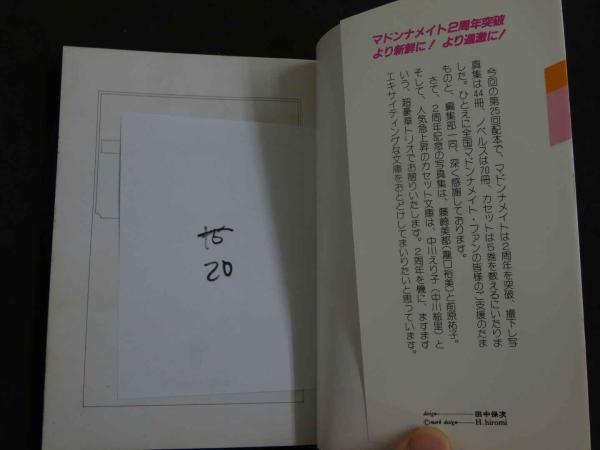 マドンナメイト2周年突破
より新鮮に! より過激に!
今回の第25回配本で、マドンナメイトは2周年を突破、撮下し写
真集は44冊、ノベルスは70冊、カセットは5巻を数えるにいたりま
した。ひとえに全国マドンナメイト・ファンの皆様のご支援のたま
ものと、編集部一同、深く感謝しております。
さて、2周年記念の写真集は、藤崎美都(瀧口裕美)と前原祐子。
そして、人気急上昇のカセット文庫は、中川えり子(中川絵里)と
いう、超豪華トリオでお贈りいたします。2周年を機に、ますます
エキサイティングな文庫をおとどけしてまいりたいと思っています。
design———田中保次
©mark design——H. hiromi
20